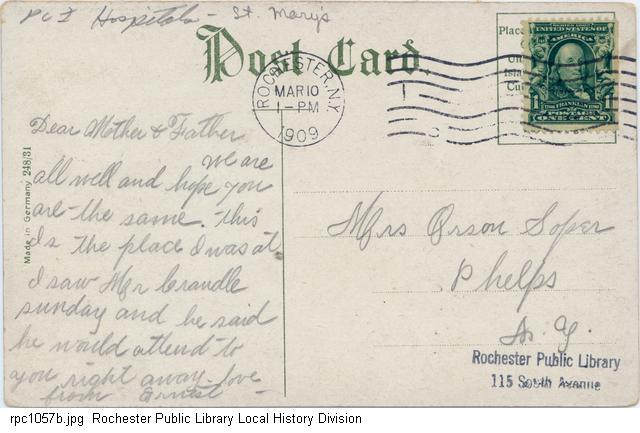 Hospitals - St. Mary's
Post Card.
ROCHESTER, N.Y.
MAR 10
1-PM
1909
Place
UNITED STATES OF
AMERICA
FRANKLIN
POSTAGE
ONE CENT
Dear Mother & Father
We are
all well and hope you
are the same. This
Is the place I was at
I saw Mr Crandle
sunday and he said
he would attend to
you right away. love
from Ernest
Made in Germany 248/31
Mrs Orson Soper
Phelps
N. Y.
Rochester Public Library
115 South Avenue
rpc1057b.jpg Rochester Public Library Local History Division